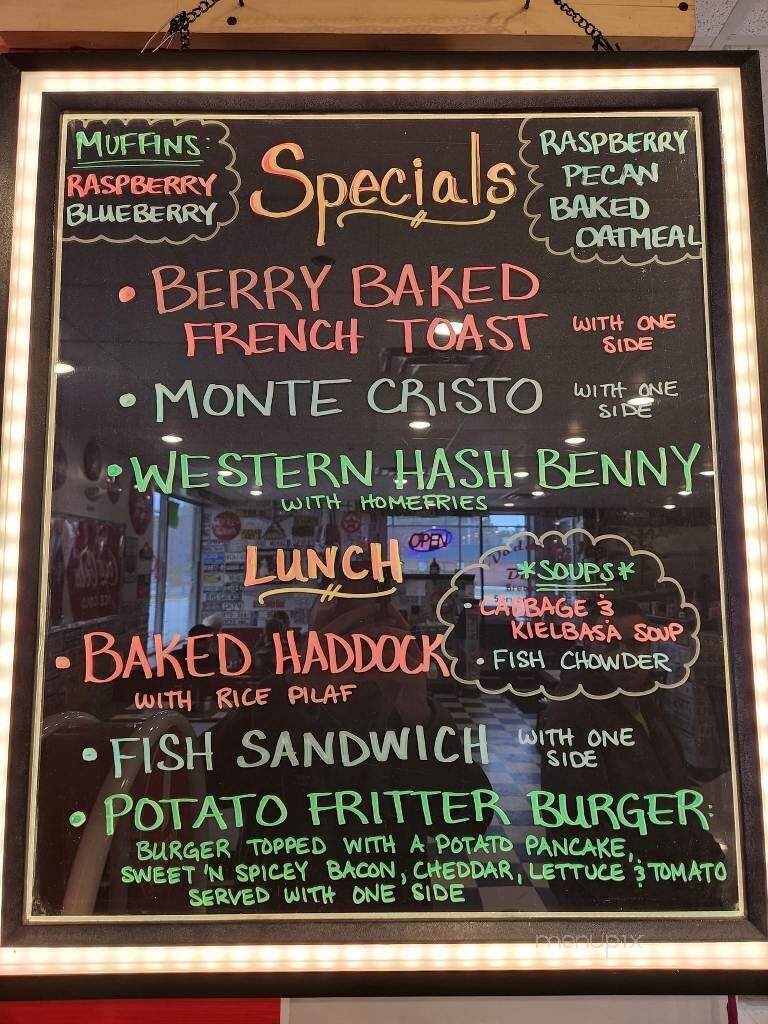 MUFFINS:
RASPBERRY
BLUEBERRY
Specials
RASPBERRY
PECAN
BAKED
OATMEAL
• BERRY BAKED
FRENCH TOAST WITH ONE
SIDE
• MONTE CRISTO WITH ONE
SIDE
• WESTERN HASH BENNY
WITH HOMEFRIES
OPEN
LUNCH
*SOUPS*
• CABBAGE &
KIELBASA SOUP
• FISH CHOWDER
• BAKED HADDOCK
WITH RICE PILAF
• FISH SANDWICH WITH ONE
SIDE
• POTATO FRITTER BURGER:
BURGER TOPPED WITH A POTATO PANCAKE,
SWEET 'N SPICEY BACON, CHEDDAR, LETTUCE & TOMATO
SERVED WITH ONE SIDE
menupix